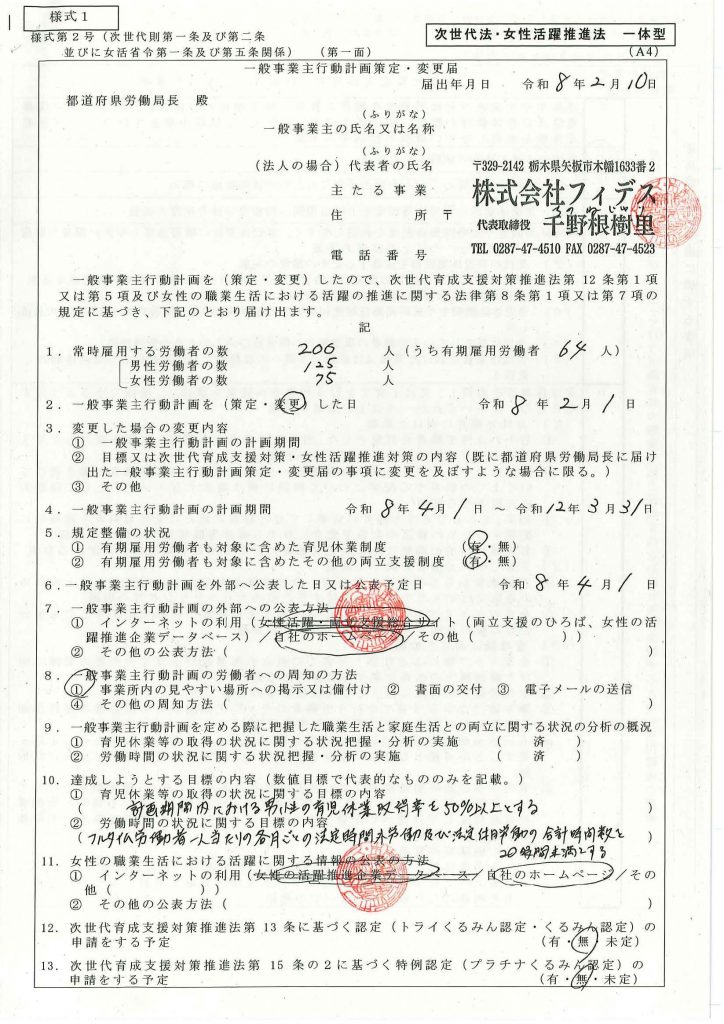 様式1
様式第2号（次世代則第一条及び第二条
並びに女活省令第一条及び第五条関係）　（第一面）
次世代法・女性活躍推進法　一体型
（A4）
一般事業主行動計画策定・変更届
届出年月日　令和8年2月10日
都道府県労働局長　殿
（ふりがな）
一般事業主の氏名又は名称
（ふりがな）
（法人の場合）代表者の氏名
〒329-2142 栃木県矢板市木幡1633番2
主たる事業
株式会社フィデス
住　所　〒
代表取締役　千野根樹里
電話番号
TEL 0287-47-4510 FAX 0287-47-4523
一般事業主行動計画を（策定・変更）したので、次世代育成支援対策推進法第12条第1項
又は第5項及び女性の職業生活における活躍の推進に関する法律第8条第1項又は第7項の
規定に基づき、下記のとおり届け出ます。
記
1．常時雇用する労働者の数　200　人（うち有期雇用労働者　64　人）
男性労働者の数　125　人
女性労働者の数　75　人
2．一般事業主行動計画を（策定・変更）した日　令和8年2月1日
3．変更した場合の変更内容
①　一般事業主行動計画の計画期間
②　目標又は次世代育成支援対策・女性活躍推進対策の内容（既に都道府県労働局長に届け
出た一般事業主行動計画策定・変更届の事項に変更を及ぼすような場合に限る。）
③　その他
4．一般事業主行動計画の計画期間　令和8年4月1日　～　令和12年3月31日
5．規定整備の状況
①　有期雇用労働者も対象に含めた育児休業制度　（有・無）
②　有期雇用労働者も対象に含めたその他の両立支援制度　（有・無）
6．一般事業主行動計画を外部へ公表した日又は公表予定日　令和8年4月1日
7．一般事業主行動計画の外部への公表方法
①　インターネットの利用（女性活躍・両立支援総合サイト（両立支援のひろば、女性の活
躍推進企業データベース）／自社のホームページ／その他（　　））
②　その他の公表方法（　　）
8．一般事業主行動計画の労働者への周知の方法
①　事業所内の見やすい場所への掲示又は備付け　②　書面の交付　③　電子メールの送信
④　その他の周知方法（　　）
9．一般事業主行動計画を定める際に把握した職業生活と家庭生活との両立に関する状況の分析の概況
①　育児休業等の取得の状況に関する状況把握・分析の実施　（　済　）
②　労働時間の状況に関する状況把握・分析の実施　（　済　）
10．達成しようとする目標の内容（数値目標で代表的なもののみを記載。）
①　育児休業等の取得の状況に関する目標の内容
（計画期間内における男性の育児休業取得率を50%以上とする）
②　労働時間の状況に関する目標の内容
（フルタイム労働者一人当たりの各月ごとの法定時間外労働及び法定休日労働の合計時間数を
20時間未満とする）
11．女性の職業生活における活躍に関する情報の公表の方法
①　インターネットの利用（女性の活躍推進企業データベース／自社のホームページ／その
他（　　））
②　その他の公表方法（　　）
12．次世代育成支援対策推進法第13条に基づく認定（トライくるみん認定・くるみん認定）の
申請をする予定　（有・無・未定）
13．次世代育成支援対策推進法第15条の2に基づく特例認定（プラチナくるみん認定）の
申請をする予定　（有・無・未定）